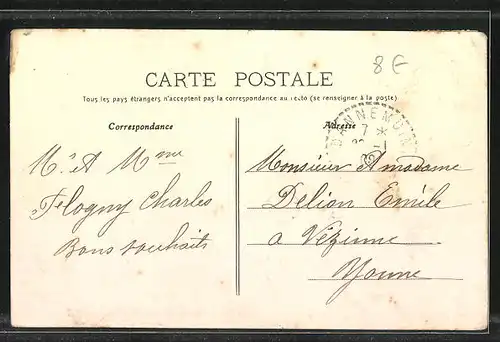 8 E
CARTE POSTALE
Tous les pays étrangers n'acceptent pas la correspondance au recto (se renseigner à la poste)
Correspondance
Adresse
DANNEMOINE
7
Mr A Mme
Flogny Charles
Bons souhaits
Monsieur A madame
Delion Emile
a Vézinne
Yonne